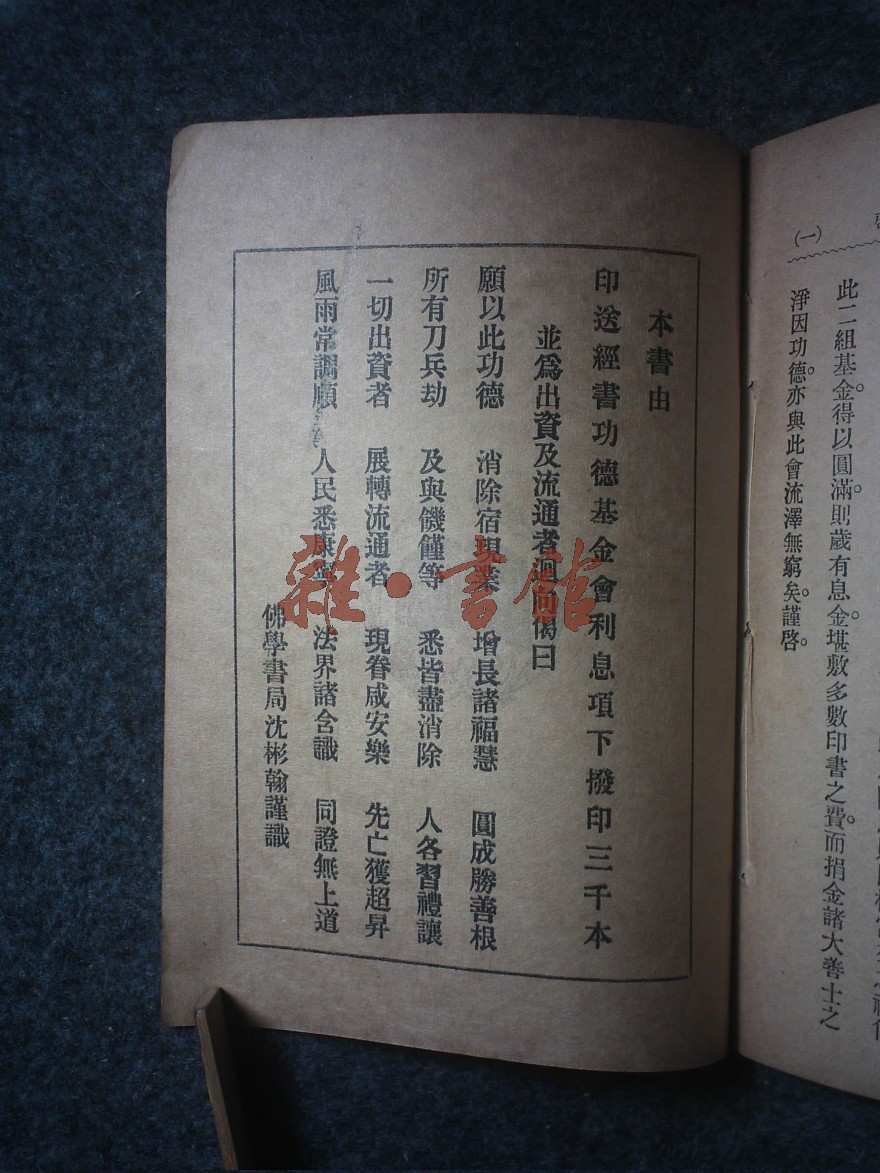 (一)
此二組基金。得以圓滿。則歲有息金。堪敷多數印書之費。而捐金諸大善士之
淨因功德。亦與此會流澤無窮矣。謹啓。
本書由
印送經書功德基金會利息項下撥印三千本
並爲出資及流通者迴向偈曰
願以此功德 消除宿現業 增長諸福慧 圓成勝善根
所有刀兵劫 及與饑饉等 悉皆盡消除 人各習禮讓
一切出資者 展轉流通者 現眷咸安樂 先亡獲超昇
風雨常調順 人民悉康寧 法界諸含識 同證無上道
佛學書局沈彬翰謹識
雜·書館